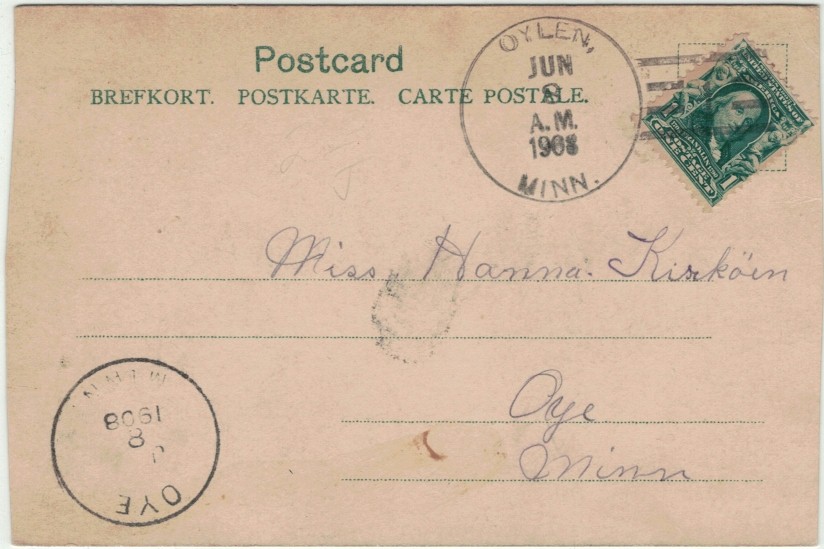 Postcard
BREFKORT. POSTKARTE. CARTE POSTALE.
OYLEN,
JUN
8
A.M.
1908
MINN.
ONE CENT
1
Miss. Hanna.
Oye
Minn
MINN.
1908
8
J
OYE